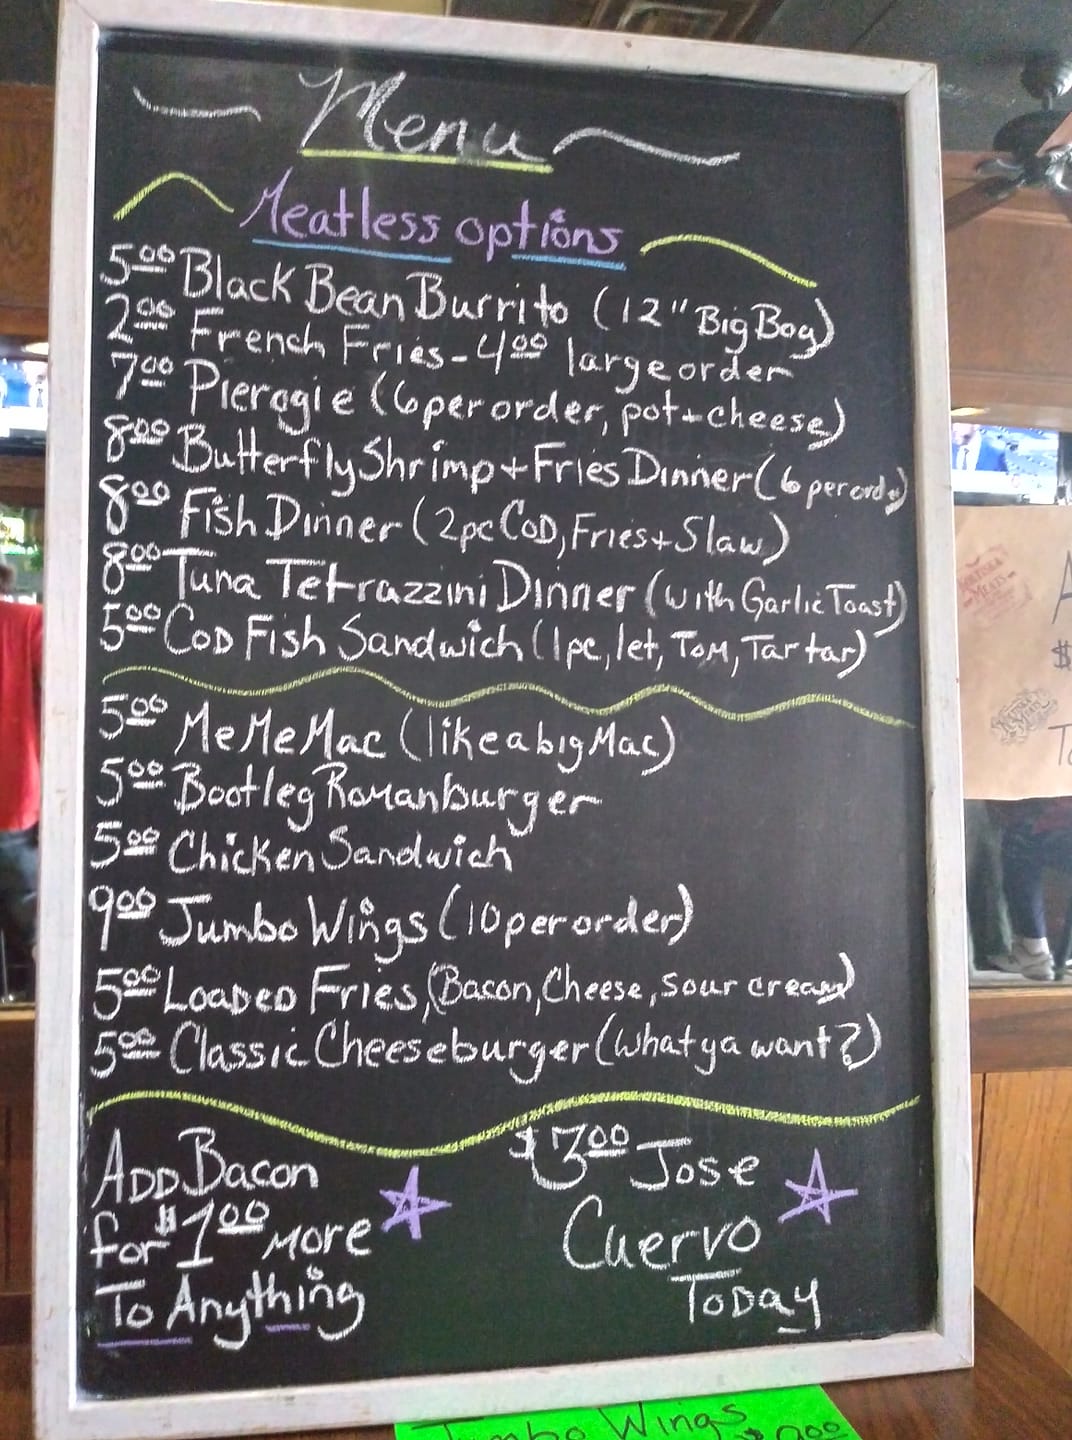 Menu
Meatless options
5.00 Black Bean Burrito (12" Big Boy)
2.00 French Fries - 4.00 large order
7.00 Pierogie (6 per order, pot + cheese)
8.00 Butterfly Shrimp + Fries Dinner (6 per order)
8.00 Fish Dinner (2pc COD, Fries + Slaw)
8.00 Tuna Tetrazzini Dinner (with Garlic Toast)
5.00 COD Fish Sandwich (1pc, let, Tom, Tartar)
5.00 MeMeMac (like a big Mac)
5.00 Bootleg Romanburger
5.00 Chicken Sandwich
9.00 Jumbo Wings (10 per order)
5.00 Loaded Fries, (Bacon, Cheese, sour cream)
5.00 Classic Cheeseburger (What ya want?)
ADD Bacon
for $1.00 More
To Anything
$3.00 Jose
Cuervo
Today
Jumbo Wings
$9.00